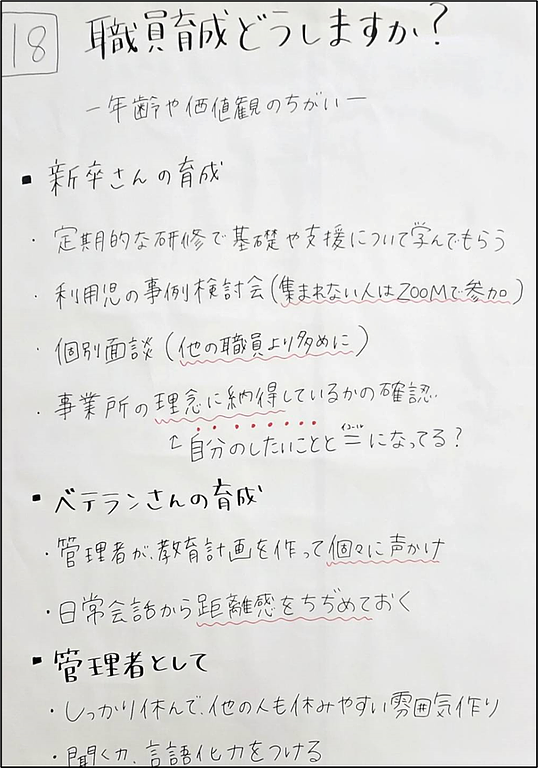 18
職員育成どうしますか?
ー年齢や価値観のちがいー
▪ 新卒さんの育成
・定期的な研修で基礎や支援について学んでもらう
・利用児の事例検討会(集まれない人はZOOMで参加)
・個別面談(他の職員より多めに)
・事業所の理念に納得しているかの確認.
↑自分のしたいことと=になってる?
イコール
▪ ベテランさんの育成
・管理者が、教育計画を作って個々に声かけ
・日常会話から距離感をちぢめておく
▪ 管理者として
・しっかり休んで、他の人も休みやすい雰囲気作り
・聞く力、言語化力をつける